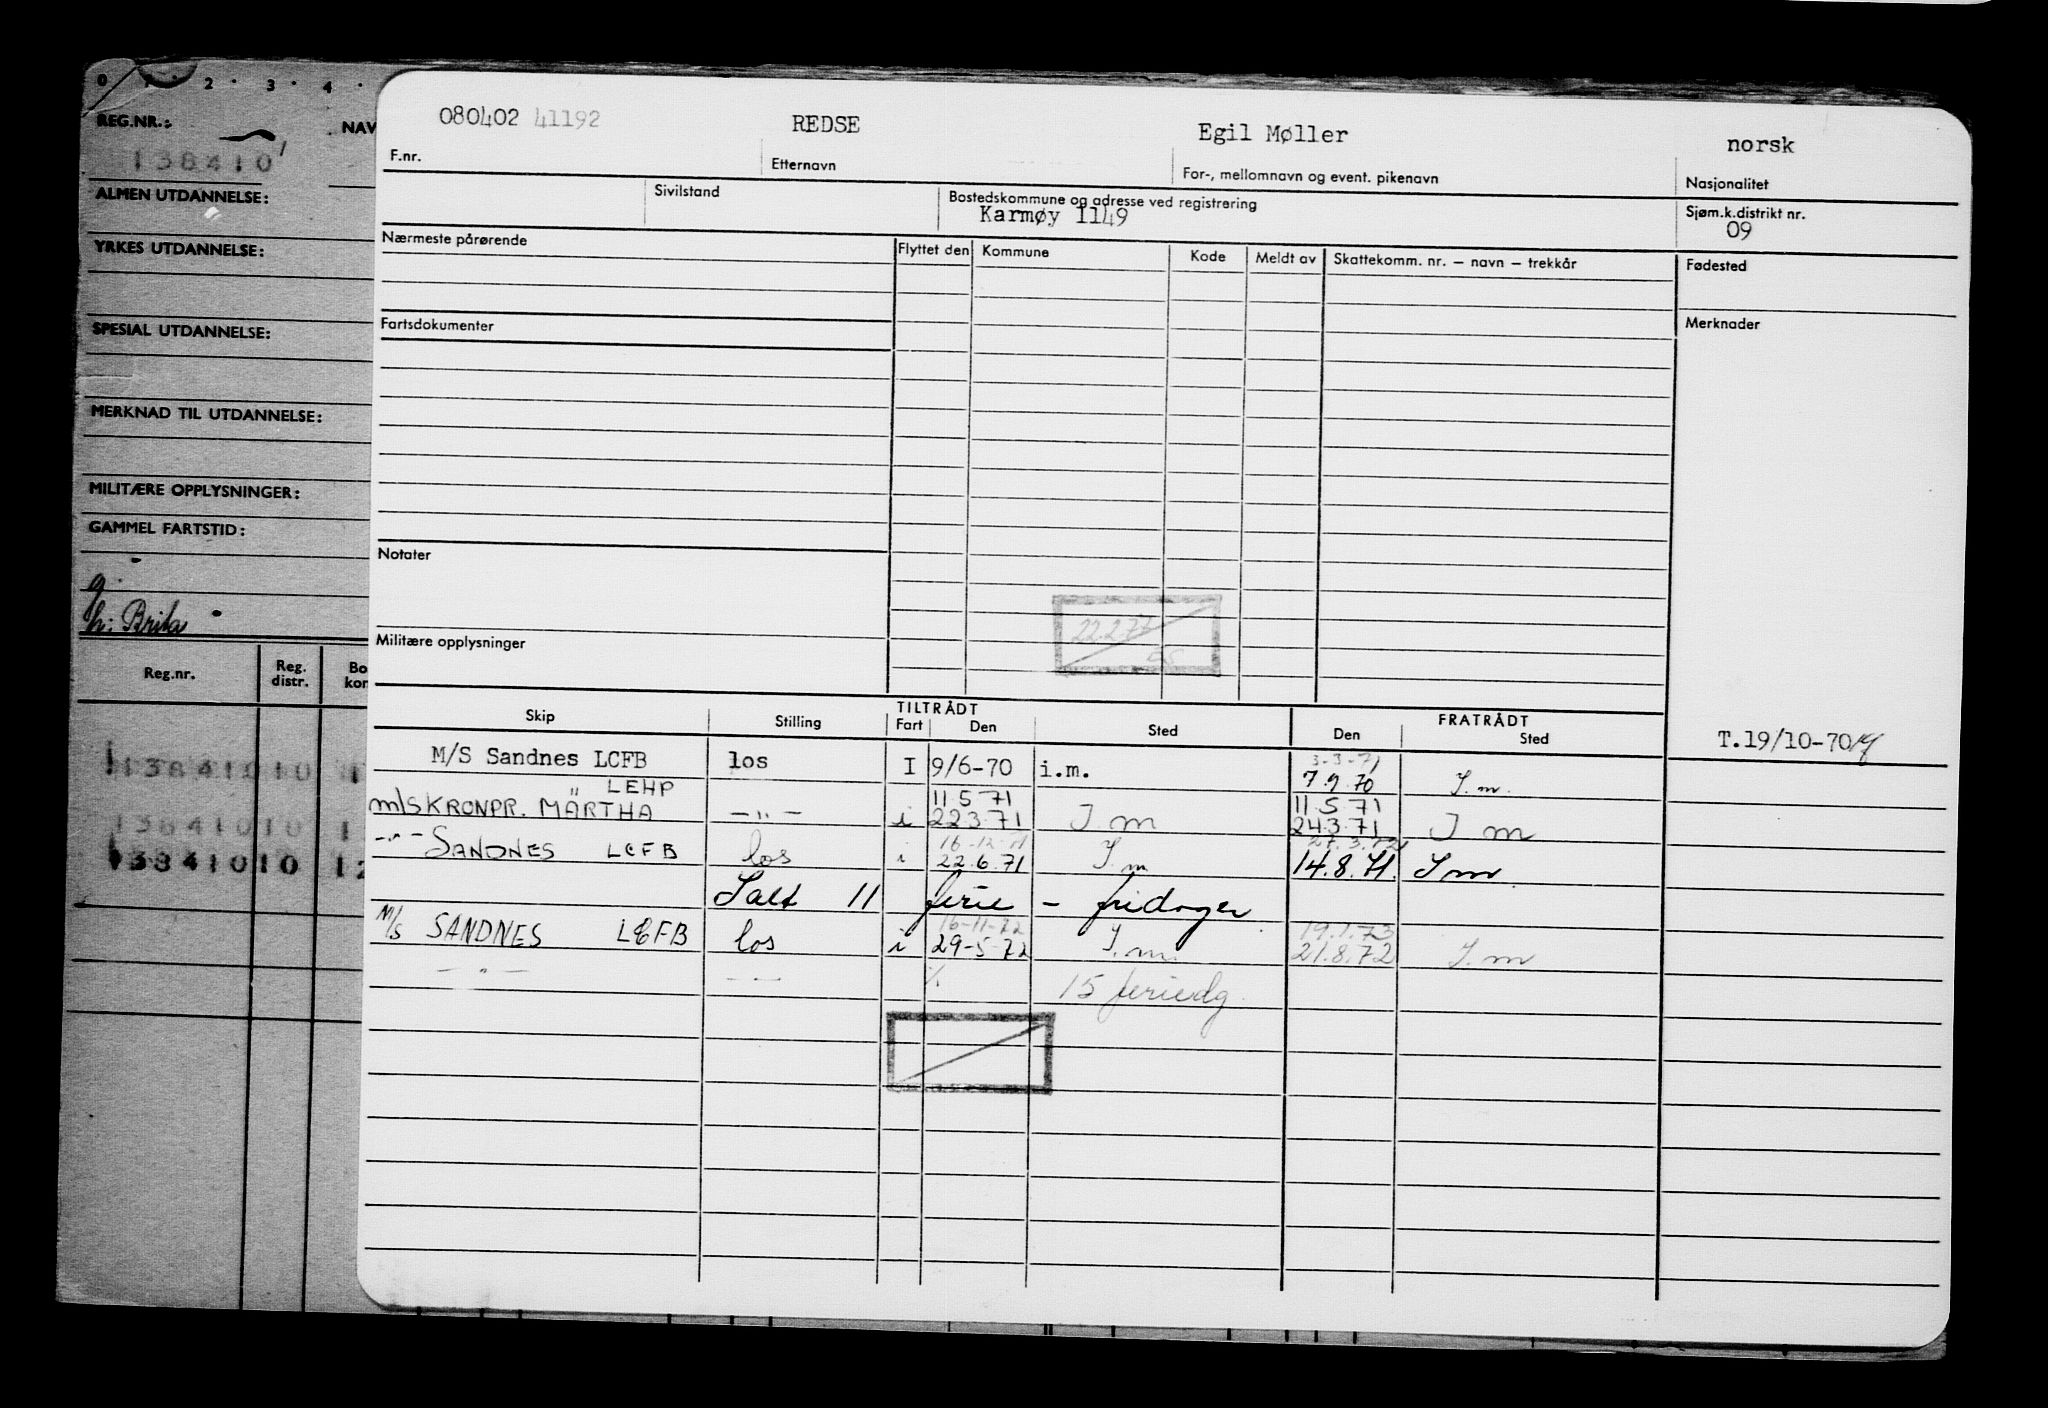 0 1 · 2 · 3 · 4 ·
REG.NR.:
NAV
138410
ALMEN UTDANNELSE:
YRKES UTDANNELSE:
SPESIAL UTDANNELSE:
MERKNAD TIL UTDANNELSE:
MILITÆRE OPPLYSNINGER:
GAMMEL FARTSTID:
h: Brita
Reg.nr. Reg. distr. Bo kon
13841010
13841010
13841010
080402 41192 REDSE Egil Møller norsk
F.nr. Etternavn For-, mellomnavn og event. pikenavn Nasjonalitet
Sivilstand Bostedskommune og adresse ved registrering Sjøm.k.distrikt nr.
Karmøy 1149 09
Nærmeste pårørende Flyttet den Kommune Kode Meldt av Skattekomm. nr. — navn — trekkår Fødested
Fartsdokumenter Merknader
Notater
22.2.72
Militære opplysninger
TILTRÅDT FRATRÅDT
Skip Stilling Fart Den Sted Den Sted
T.19/10-70
3-3-71
M/S Sandnes LCFB los I 9/6-70 i.m. 7.9.70 I.m.
LEHP 11.5.71 11.5.71
m/s KRONPR. MÄRTHA —„— i 22.3.71 I m 24.3.71 I m
16-12-71 27.3.72
—"— SANDNES LCFB los i 22.6.71 I.m 14.8.71. I m.
Salt 11 ferie - fridager
16-11-72 19.1.73
M/S SANDNES LCFB los i 29-5-72 I.m. 21.8.72 I.m
—"— —— ./. 15 feriedg.